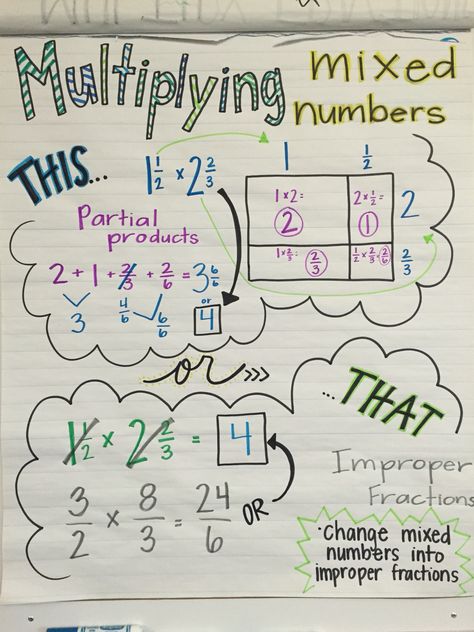 Multiplying mixed numbers
THIS... 1 1/2 × 2 2/3
1 1/2
1×2= 2 2×1/2= 1 2
1×2/3= 2/3 1/2×2/3=2/6 2/3
Partial
products
2 + 1 + 2/3 + 2/6 = 3 6/6
3 4/6 6/6 or 4
or >>>
...THAT
1 1/2 × 2 2/3 = 4
3/2 × 8/3 = 24/6 OR
Improper
Fractions
·Change mixed
numbers into
improper fractions